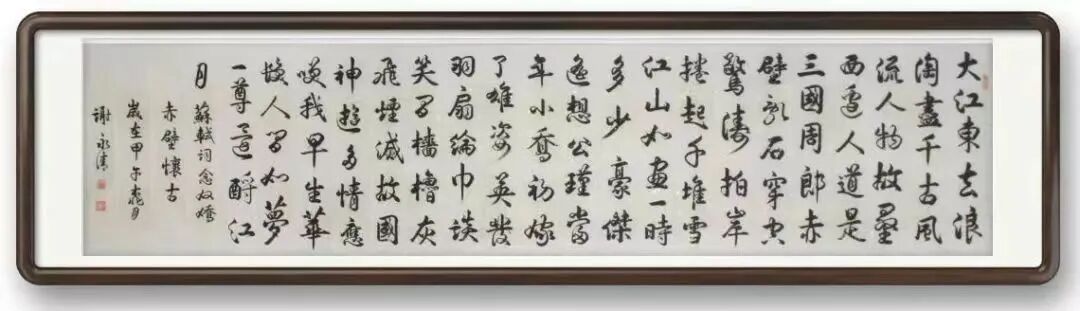 大江東去浪
淘盡千古風
流人物故壘
西邊人道是
三國周郎赤
壁亂石穿空
驚濤拍岸
捲起千堆雪
江山如畫一時
多少豪傑
遙想公瑾當
年小喬初嫁
了雄姿英發
羽扇綸巾談
笑間檣櫓灰
飛煙滅故國
神遊多情應
笑我早生華
髮人間如夢
一尊還酹江
月
蘇軾詞念奴嬌
赤壁懷古
歲在甲午月
謝永清